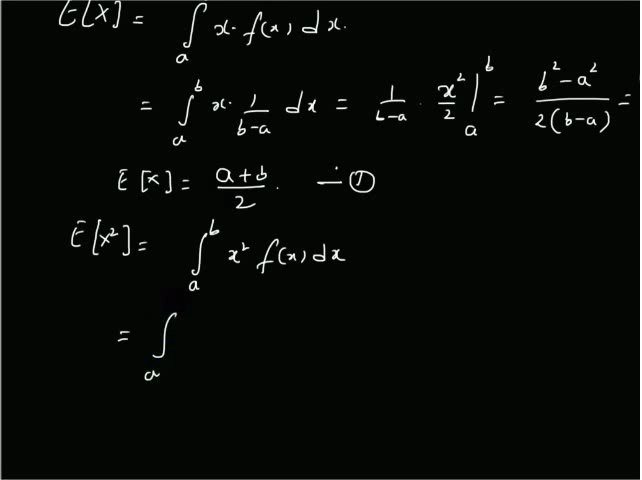 E[X] = ∫ₐ x. f(x) dx.
= ∫ₐᵇ x. 1/(b-a) dx = 1/(b-a) . x²/2 |ₐᵇ = (b²-a²)/(2(b-a)) =
E[x] = (a+b)/2 . — ①
E[x²] = ∫ₐᵇ x² f(x) dx
= ∫ₐ